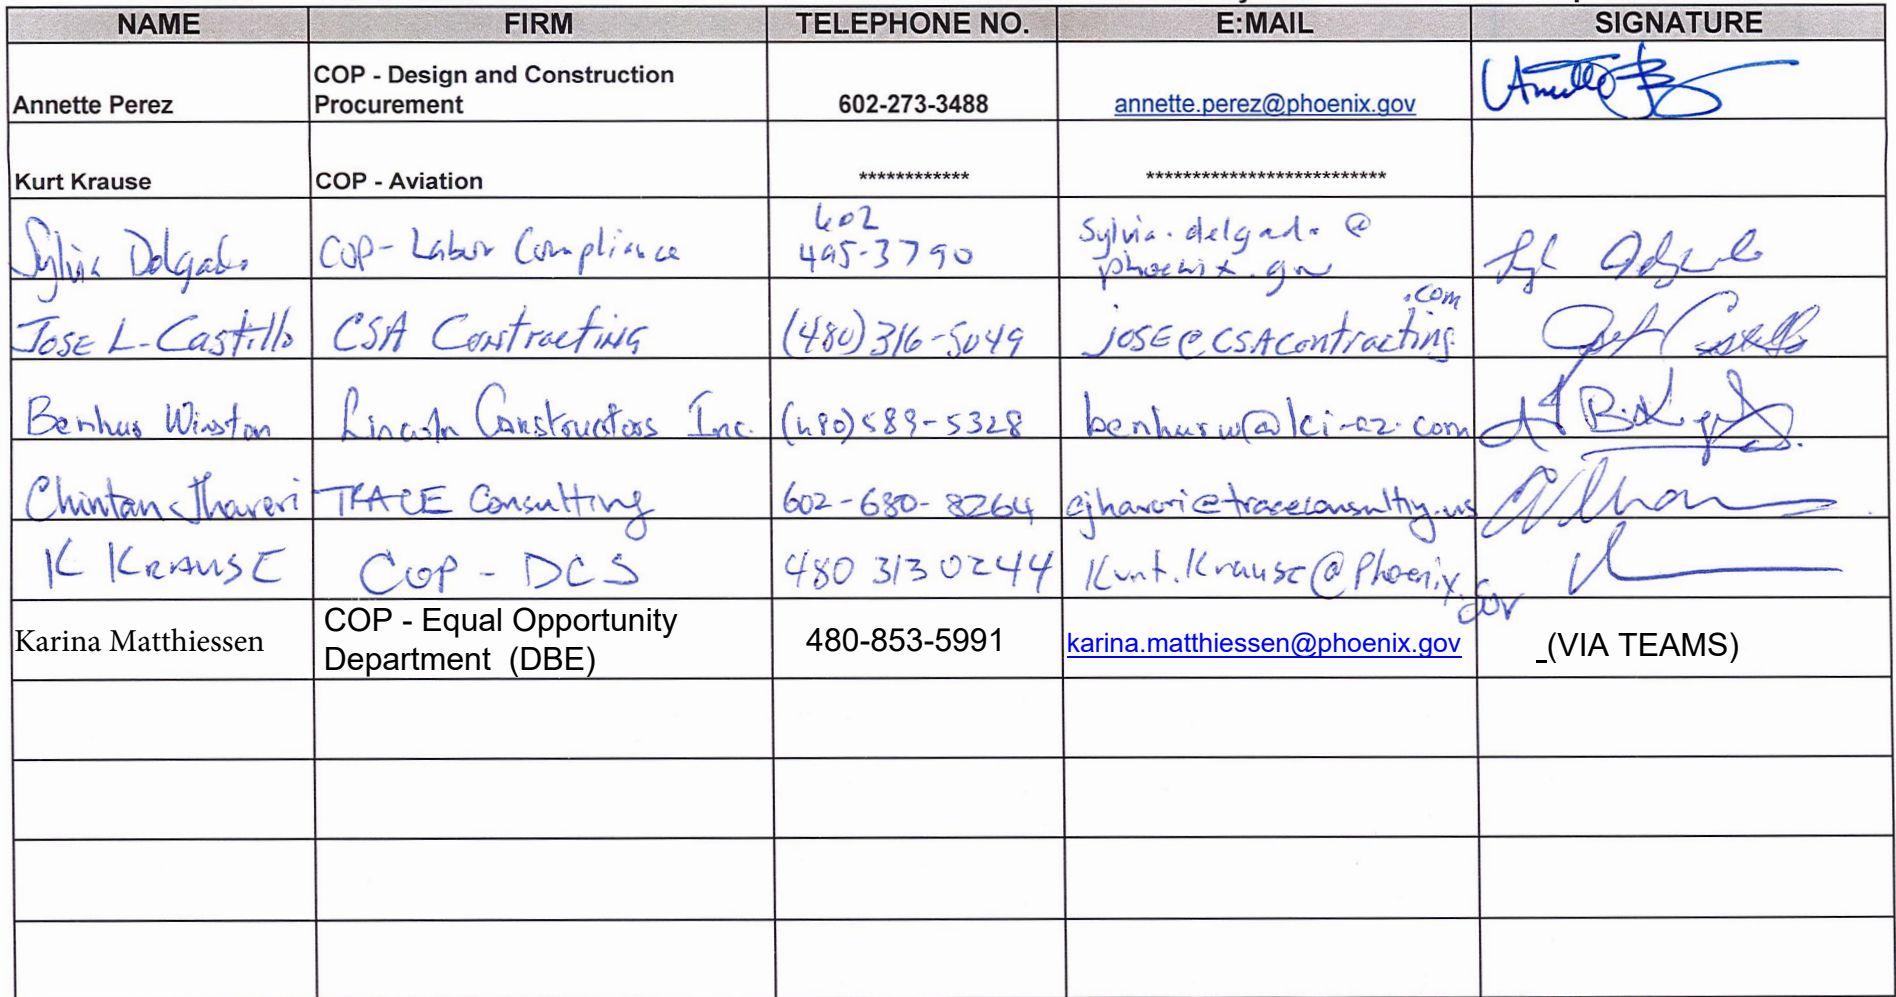 NAME FIRM TELEPHONE NO. E:MAIL SIGNATURE
COP - Design and Construction
Annette Perez Procurement 602-273-3488 annette.perez@phoenix.gov
Kurt Krause COP - Aviation ************ **************************
602 Sylvia.delgado @
Sylvia Delgado COP- Labor Compliance 495-3790 phoenix.gov
.com
JOSE L. Castillo CSA Contracting (480)316-5049 JOSE@CSAcontracting
Benhur Winston Lincoln Constructors Inc. (480)589-5328 benhurw@lci-az.com
Chintan Jhaveri TRACE Consulting 602-680-8264 cjhaveri@traceconsulting.us
K KRAUSE COP - DCS 480 313 0244 Kurt.Krause@Phoenix.gov
COP - Equal Opportunity
Karina Matthiessen Department (DBE) 480-853-5991 karina.matthiessen@phoenix.gov (VIA TEAMS)